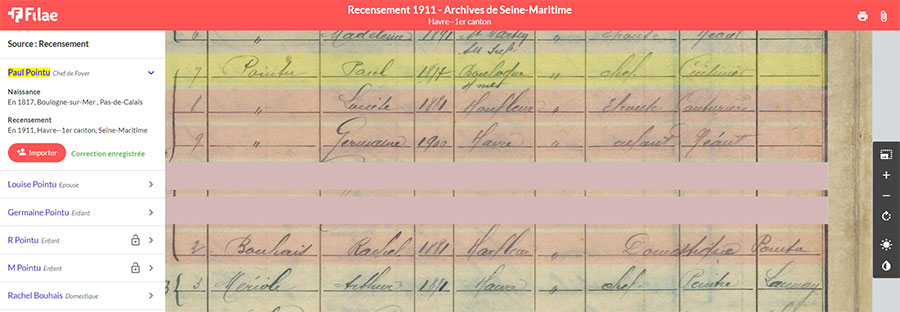 Filae
Recensement 1911 - Archives de Seine-Maritime
Havre--1er canton
Source : Recensement
Paul Pointu Chef de Foyer
Naissance
En 1817, Boulogne-sur-Mer , Pas-de-Calais
Recensement
En 1911, Havre--1er canton, Seine-Maritime
Importer Correction enregistrée
Louise Pointu Epouse
Germaine Pointu Enfant
R Pointu Enfant
M Pointu Enfant
Rachel Bouhais Domestique
6 " Madeleine 1891 " Néant
7 Pointu Paul 1817 Boulogne " chef
s/ mer
8 " 1881 Honfleur "
9 " Germaine 1900 Havre " enfant Néant
2 Bouhais Rachel 1881 Honfleur " Domestique Pointu
3 Mériole Arthur 1881 Havre " chef Peintre Launay